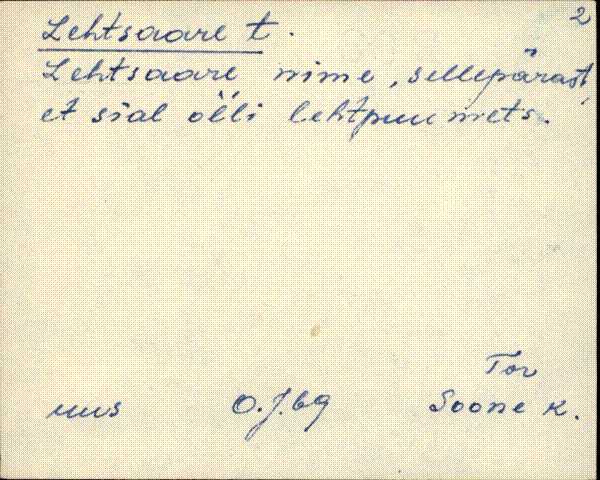 2
Lehtsaare t.
Lehtsaare nime, sellepärast,
et sial olli lehtpuu mets.
Tor
uus O.J.69 Soone k.